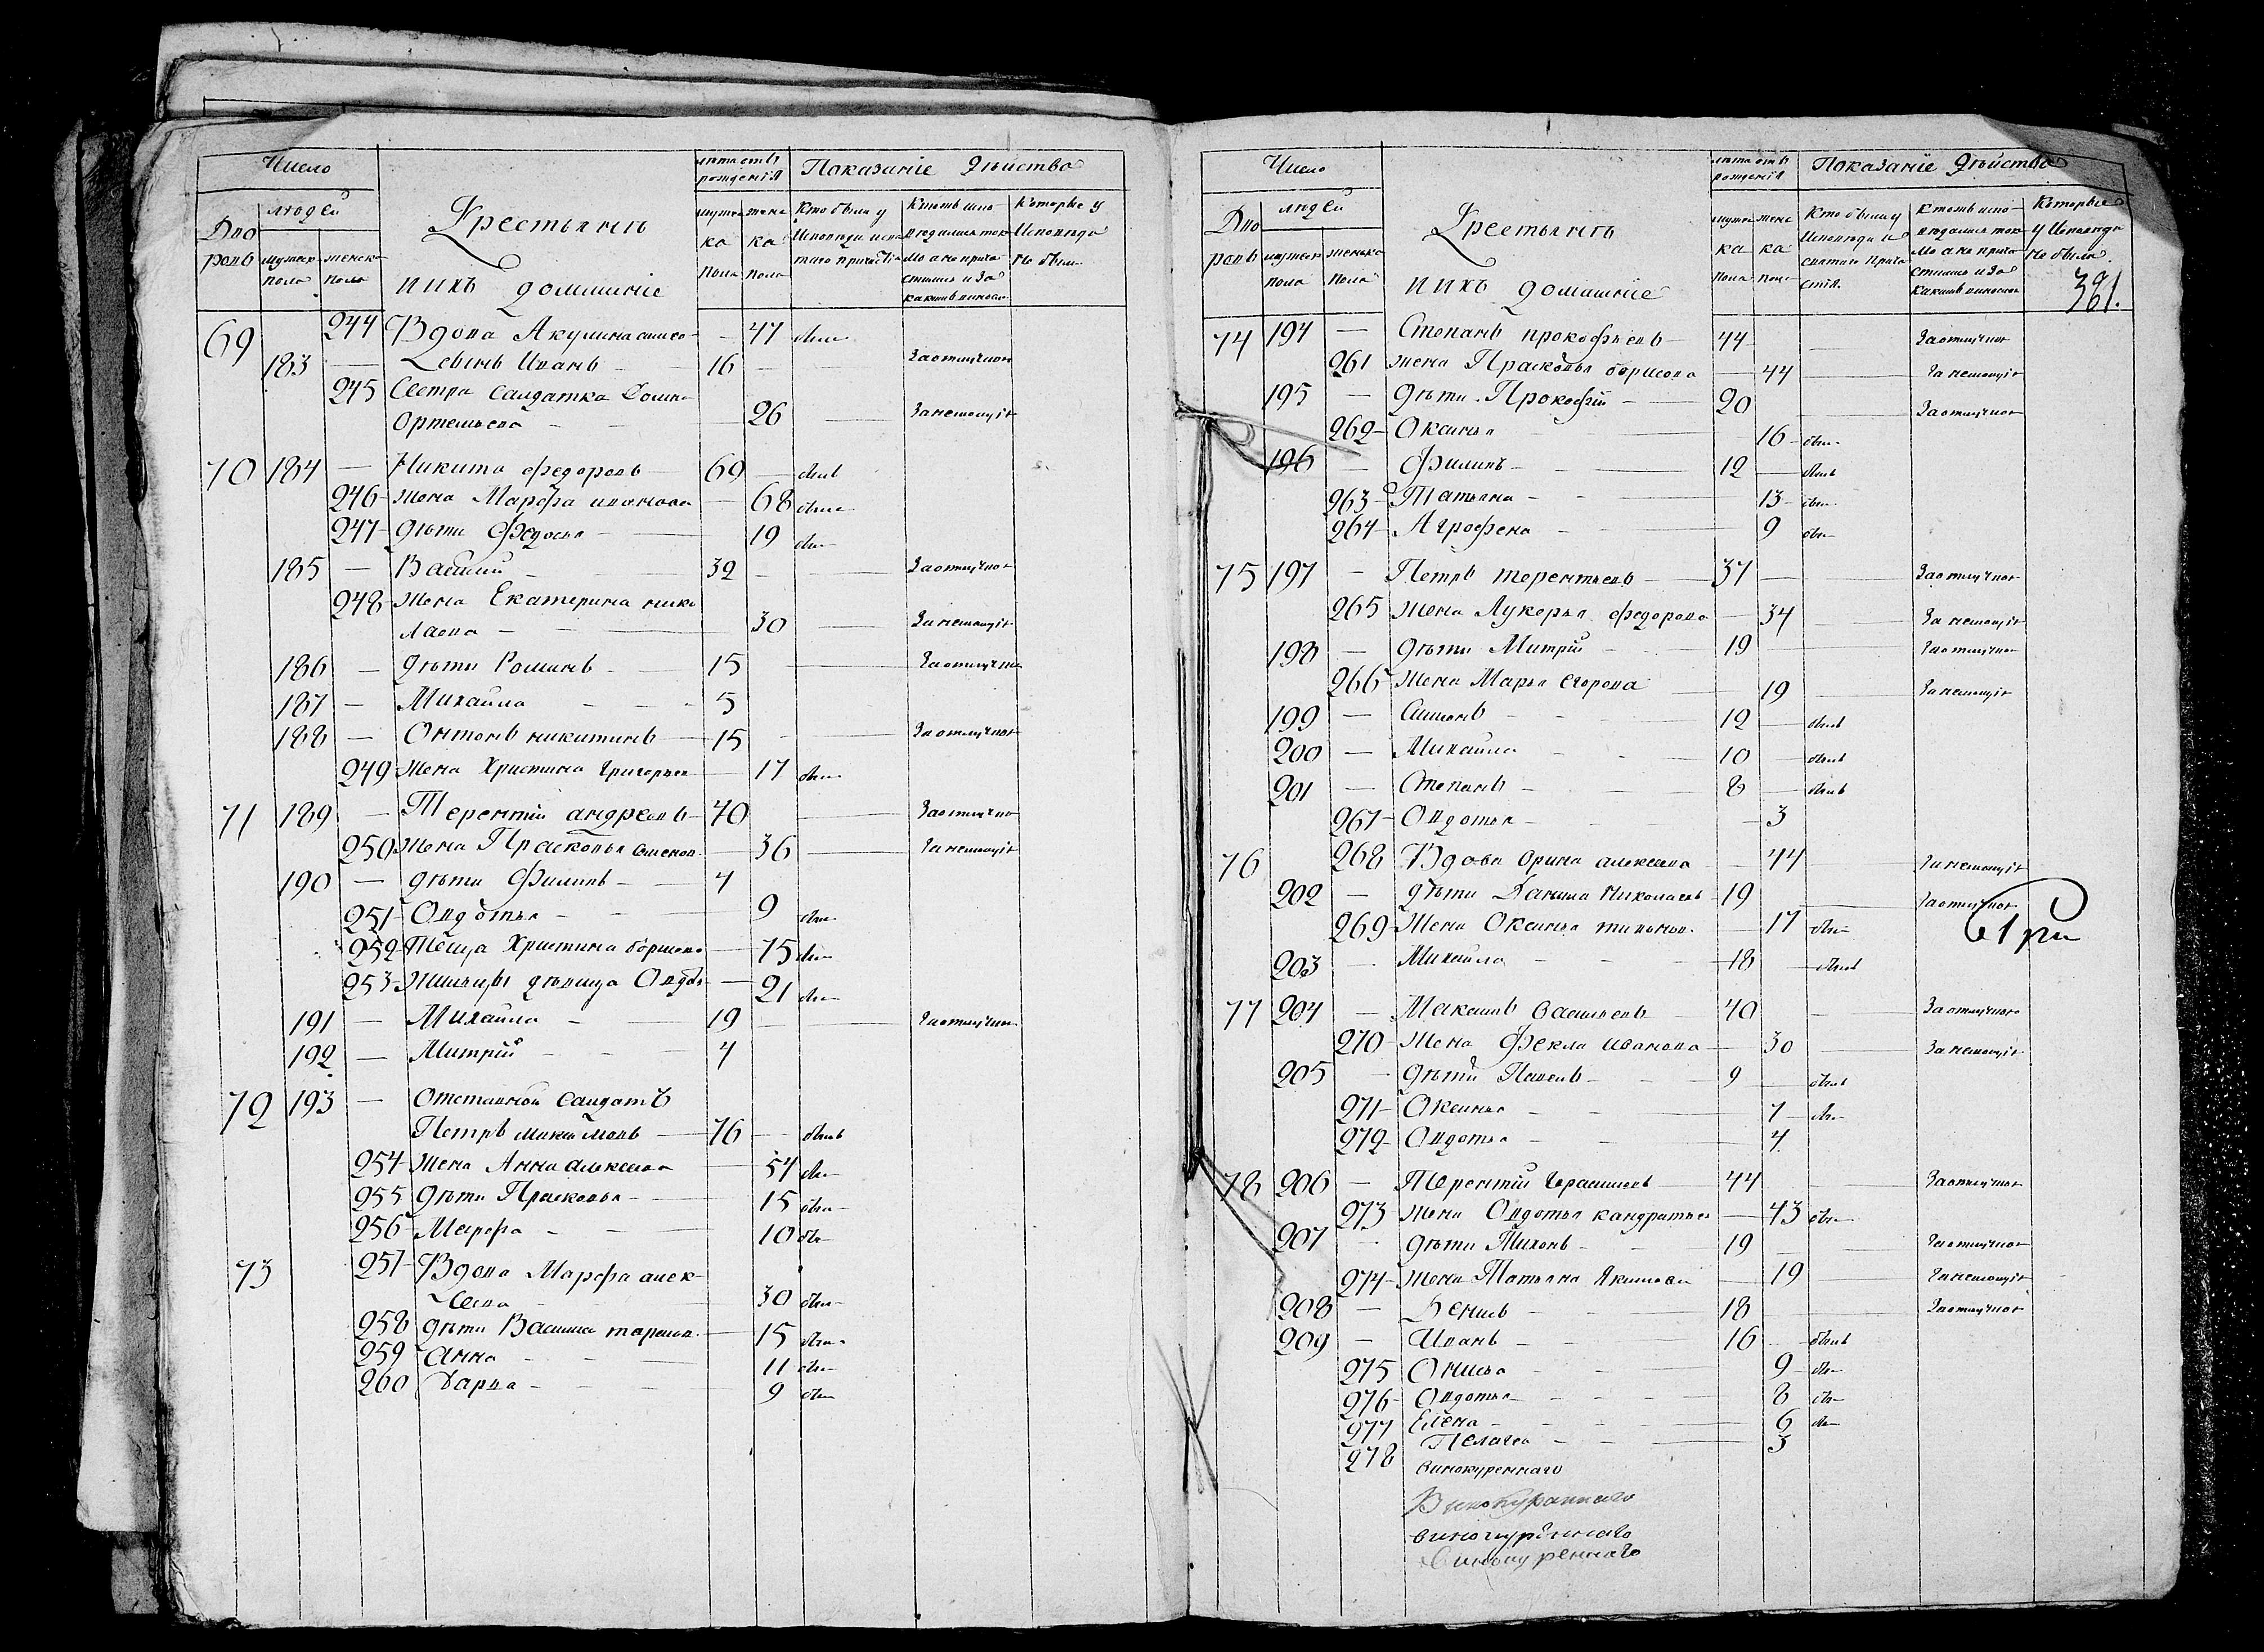 Число
людей
Дво
ровъ
мужск
пола
женск
пола
Крестьянъ
и ихъ домашнiе
лѣта отъ
рожденiя
мужес
ка
пола
женс
ка
пола
Показанiе Дѣйства
Кто были у
Исповѣди и свя
таго причастiя
Кто исповѣдался ток
мо а не прича
стился и за
какимъ виносл
Которые у
Исповѣди
не были
69 244 Вдова Акулина симео- 47 была
183 — Ея сынъ Иванъ 16 — За отлучкою
245 Сестра Салдатка Домна
Ортемьева 26 — За немощiю
70 184 — Никита федоровъ 69 — былъ
246 Жена Марфа иванова — 68 была
247 Дѣти Федосья 19 была
185 — Василий 32 — За отлучкою
248 Жена Екатерина нико
лаева 30 — За немощiю
186 — дѣти Романъ 15 — За отлучкою
187 — Михайла 5
188 — Онтонъ никитинъ 15 — За отлучкою
249 Жена Христина Григорьев — 17 была
71 189 — Терентiй андреевъ 40 — За отлучкою
250 Жена Прасковья семенов. — 36 — За немощiю
190 — дѣти Филипъ 4
251 Овдотья 9 была
252 Теща Христина борисова — 75 была
253 Жилицы дѣвица Овдот — 21 была
191 — Михайла 19 — За отлучкою
192 — Митрiй 4
72 193 — Отставной Салдатъ
Петръ максимовъ 76 — былъ
254 Жена Анна алексеева — 54 была
255 Дѣти Прасковья 15 была
256 Марфа 10 была
73 257 Вдова Марфа алек-
сеева 30 была
258 дѣти Василиса тарасов. — 15 была
259 Анна 11 была
260 Дарья 9 была
Число
людей
Дво
ровъ
мужеск
пола
женска
пола
Крестьянъ
и ихъ домашнiе
лѣта отъ
рожденiя
мужес
ка
пола
женс
ка
пола
Показанiе Дѣйства
Кто были у
Исповѣди и
святаго прича
стiя
Кто исповѣдался ток
мо а не прича
стился и за
какимъ виносл
Которые
у Исповѣди
не были
381.
74 194 — Степанъ прокофьевъ 44 — За отлучкою
261 жена Прасковья борисова — 44 — За немощiю
195 — дѣти Прокофiй 20 — За отлучкою
262 Оксинья 16 была
196 — Филипъ 12 — былъ
263 Татьяна 13 была
264 Агрофена 9 была
75 197 — Петръ терентьевъ 37 — За отлучкою
265 Жена Лукерья федорова — 34 — За немощiю
198 — дѣти Митрiй 19 — За отлучкою
266 Жена Марья егорова 19 — За немощiю
199 — Симонъ 12 — былъ
200 — Михайла 10 — былъ
201 — Степанъ 8 — былъ
267 Овдотья 3
76 268 Вдова Орина алексеева — 44 — За немощiю
202 — дѣти Данила Николаевъ 19 — За отлучкою
269 Жена Оксинья тихонов. — 17 была
203 — Михайла 18 — былъ
77 204 — Максимъ Васильевъ 40 — За отлучкою
270 Жена Фекла иванова — 30 — За немощiю
205 — дѣти Павелъ 9 — былъ
271 Оксинья 7 была
272 Овдотья 4
78 206 — Терентiй Герасимовъ 44 — За отлучкою
273 Жена Овдотья кандратьев — 43 была
207 — дѣти Тихонъ 19 — За отлучкою
274 Жена Татьяна Якимова — 19 — За немощiю
208 — Денисъ 18 — За отлучкою
209 — Иванъ 16 — былъ
275 Онисья 9 была
276 Овдотья 8 была
277 Елена 6 была
278 Пелагея 3
винокуреннаго
Винокураннаго
винокуреннаго
Винокуреннаго